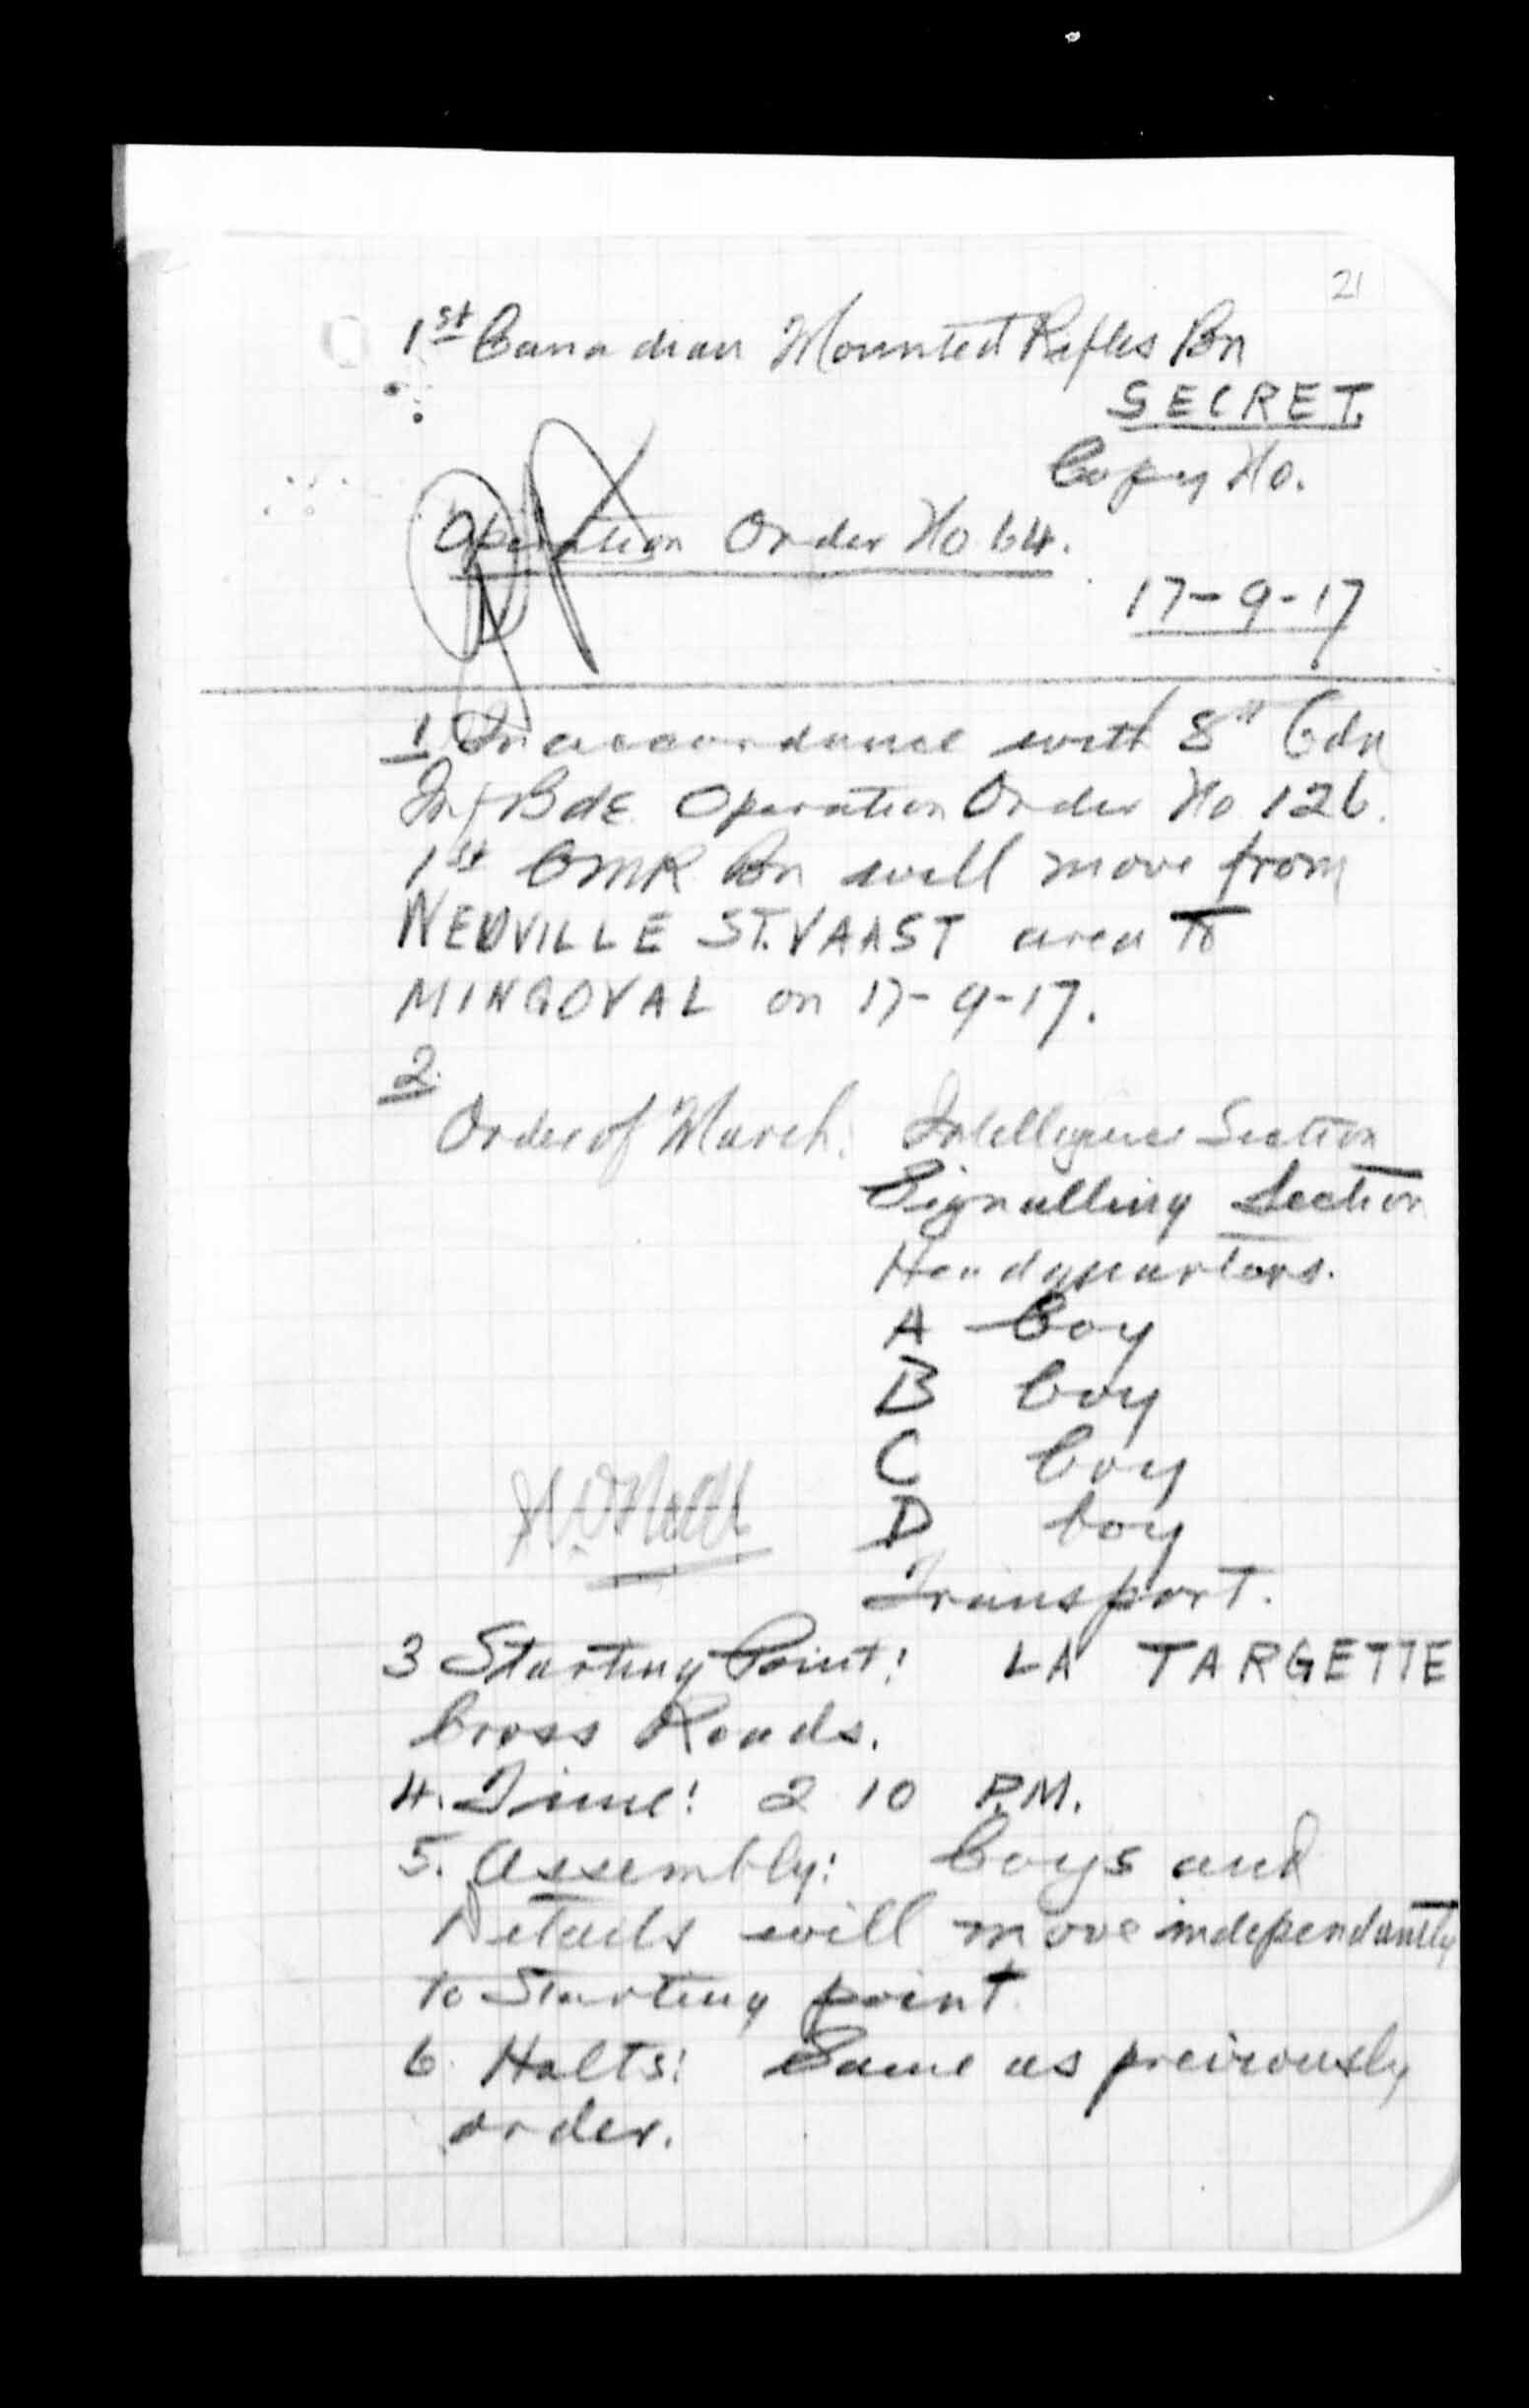 21
1st Canadian Mounted Rifles Bn
SECRET.
Copy No.
Operation Order No 64.
17-9-17
1. In accordance with 8th Cdn
Inf Bde. Operation Order No 126.
1st CMR Bn will move from
NEUVILLE ST. VAAST area to
MINGOVAL on 17-9-17.
2.
Order of March: Intelligence Section
Signalling Section
Headquarters.
A Coy
B Coy
C Coy
D Coy
Transport.
3 Starting Point: LA TARGETTE
Cross Roads.
4. Time: 2 10 P.M.
5. Assembly: Coys and
Details will move independantly
to Starting point.
6. Halts: Same as previously
order.